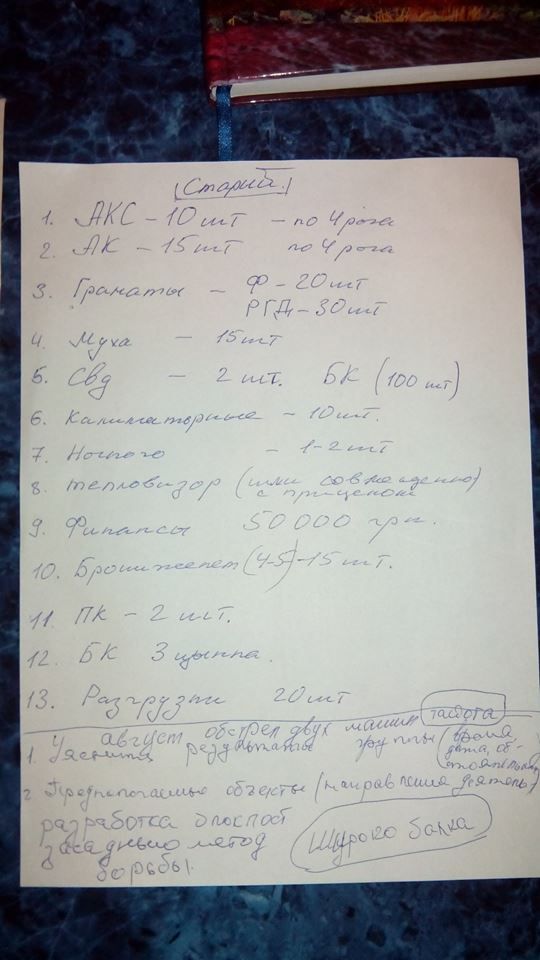 Старий.
1. АКС - 10 шт - по 4 рога
2. АК - 15 шт по 4 рога
3. Гранаты - Ф - 20 шт
РГД - 30 шт
4. Муха - 15 шт
5. Свд - 2 шт. БК (100 шт)
6. Калиматорные - 10 шт.
7. Ночного - 1-2 шт
8. тепловизор (или совмещенно)
с прицелом
9. Финансы 50 000 грн.
10. Бронижелет (4-5) - 15 шт.
11. ПК - 2 шт.
12. БК 3 цынка.
13. Разгрузки 20 шт
август обстрел двух машин
1. результаты группы (время
дата, об-
2. Предполагаемые объекты (направления деятель)
разработка блокпост
засадный метод
борьбы.
Широко балка